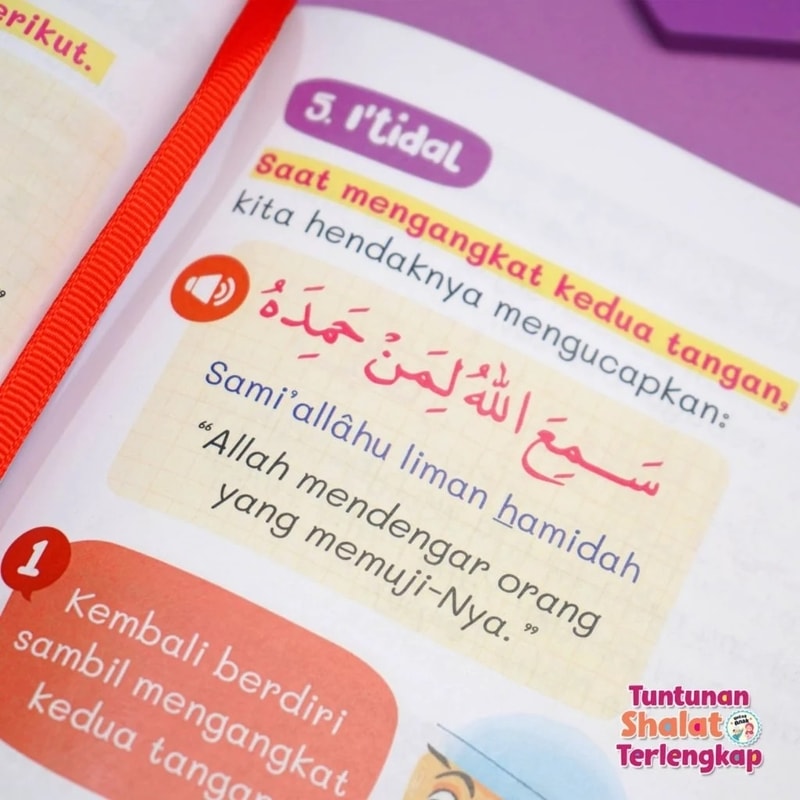 erikut.
5. I'tidal
Saat mengangkat kedua tangan,
kita hendaknya mengucapkan:
سَمِعَ اللهُ لِمَنْ حَمِدَهُ
Sami'allâhu liman hamidah
“Allah mendengar orang
yang memuji-Nya.”
1
Kembali berdiri
sambil mengangkat
kedua tangan
Tuntunan
Shalat
Terlengkap